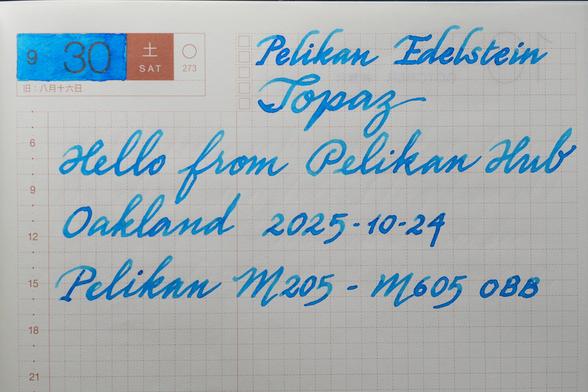 9 30 土 SAT 273
旧：八月十六日
Pelikan Edelstein
Topaz
Hello from Pelikan Hub
Oakland 2025-10-24
Pelikan M205 - M605 OBB
6
9
12
15
18
21